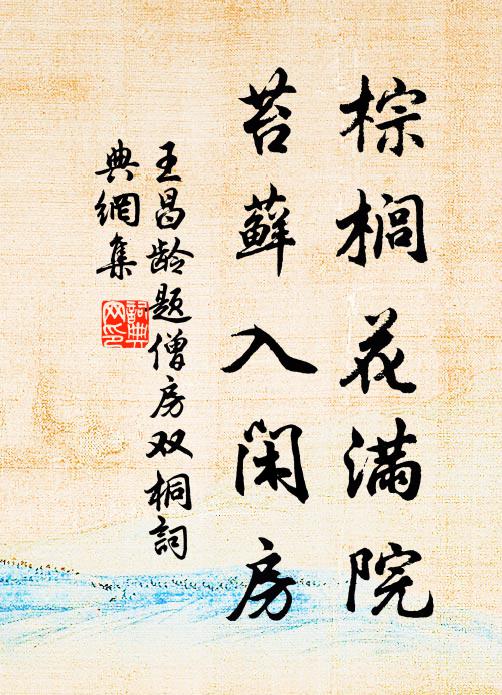 棕榈花满院
苔蘚入闲房
王昌龄题僧房双桐詞
典網集
詞典
网印